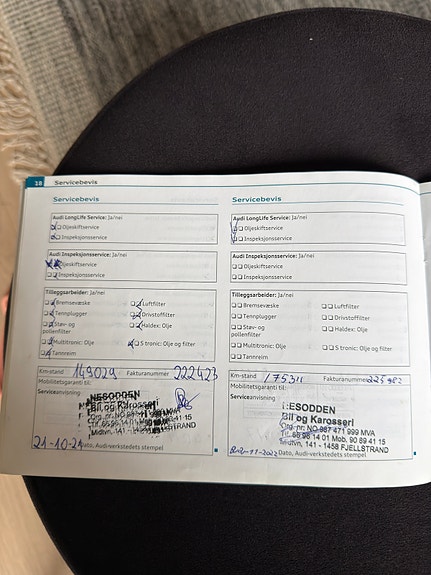 38 Servicebevis
Servicebevis
Audi LongLife Service: Ja/nei
Oljeskiftservice
Inspeksjonsservice
Audi Inspeksjonsservice: Ja/nei
Oljeskiftservice
Inspeksjonsservice
Tilleggsarbeider: Ja/nei
Bremsevæske
Luftfilter
Tennplugger
Drivstoffilter
Støv- og pollenfilter
Haldex: Olje
Multitronic: Olje
S tronic: Olje og filter
Tannreim
Km-stand 149029 Fakturanummer 222423
Mobilitetsgaranti til:
Serviceanvisning
NESODDEN
Bil og Karosseri
MVA
90 89 41 15
141 - FJELLSTRAND
21-10-21 Dato, Audi-verkstedets stempel
Servicebevis
Servicebevis
Audi LongLife Service: Ja/nei
Oljeskiftservice
Inspeksjonsservice
Audi Inspeksjonsservice: Ja/nei
Oljeskiftservice
Inspeksjonsservice
Tilleggsarbeider: Ja/nei
Bremsevæske
Luftfilter
Tennplugger
Drivstoffilter
Støv- og pollenfilter
Haldex: Olje
Multitronic: Olje
S tronic: Olje og filter
Tannreim
Km-stand 175311 Fakturanummer 225982
Mobilitetsgaranti til:
Serviceanvisning
NESODDEN
Bil og Karosseri
Org.nr: NO 887 471 999 MVA
Tlf. 66 96 14 01 Mob. 90 89 41 15
141 - 1458 FJELLSTRAND
11-2022 Dato, Audi-verkstedets stempel